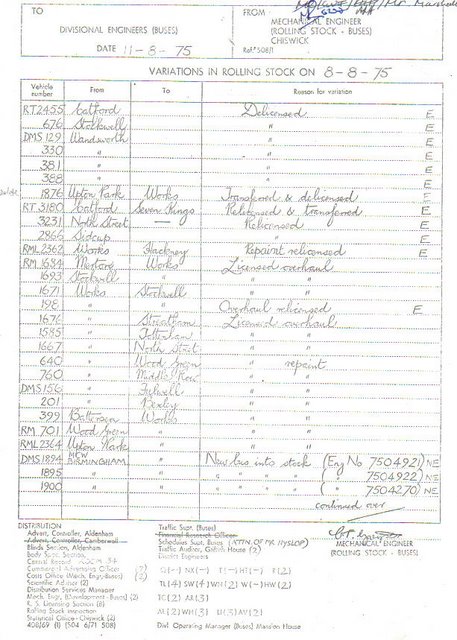 TO
DIVISIONAL ENGINEERS (BUSES)
DATE 11-8-75
FROM
MECHANICAL ENGINEER
(ROLLING STOCK - BUSES)
CHISWICK
Ref. 508/1
VARIATIONS IN ROLLING STOCK ON 8-8-75
Vehicle number From To Reason for variation
RT2455 Catford Delicensed E
676 Stockwell " E
DMS129 Wandsworth " E
330 " " E
381 " " E
388 " " E
1876 Upton Park Works Transferred & delicensed E
RT 3180 Catford Seven Kings Relicensed & transferred E
3231 North Street — Relicensed E
2866 Sidcup " E
RML2362 Works Hackney Repaint relicensed E
RM 1684 Mortlake Works Licensed overhaul
1693 Stockwell " "
1671 Works Stockwell "
198 " " Overhaul relicensed E
1676 " Streatham Licensed overhaul
1585 " Tottenham " "
1667 " North Street " "
640 " Wood Green " repaint
760 " Middle Row " "
DMS156 " Fulwell " "
201 " Bexley " "
399 Battersea Works " "
RM 701 Wood Green " " "
RML2364 Upton Park " " "
DMS1894 MCW BIRMINGHAM New bus into stock (Eng No 7504921) NE
1895 " " " " " ( " 7504922) NE
1900 " " " " " ( " 7504270) NE
continued over
DISTRIBUTION
Advert. Controller, Aldenham
Advert. Controller, Camberwell
Blinds Section, Aldenham
Body Spec. Section
Central Record
Commercial Advertising Officer (2)
Costs Office (Mech. Engr-Buses) (2)
Scientific Adviser (2)
Distribution Services Manager
Mech. Engr. (Development - Buses) (2)
R. S. Licensing Section (8)
Rolling Stock Inspection
Statistical Office - Chiswick (2)
408/69 (1) (504 6/71 508)
Traffic Supt. (Buses)
Financial Research Officer
Schedules Supt. Buses (ATTN. OF MR HYSLOP)
Traffic Auditor, Griffith House (2)
District Engineers
TL(4) SW(4) WN(2) W(-) HW(2)
TC(2) AR(3)
AE(2) WH(3) LH(3) AV(2)
Divl Operating Manager (Buses) Mansion House
MECHANICAL ENGINEER
(ROLLING STOCK - BUSES)